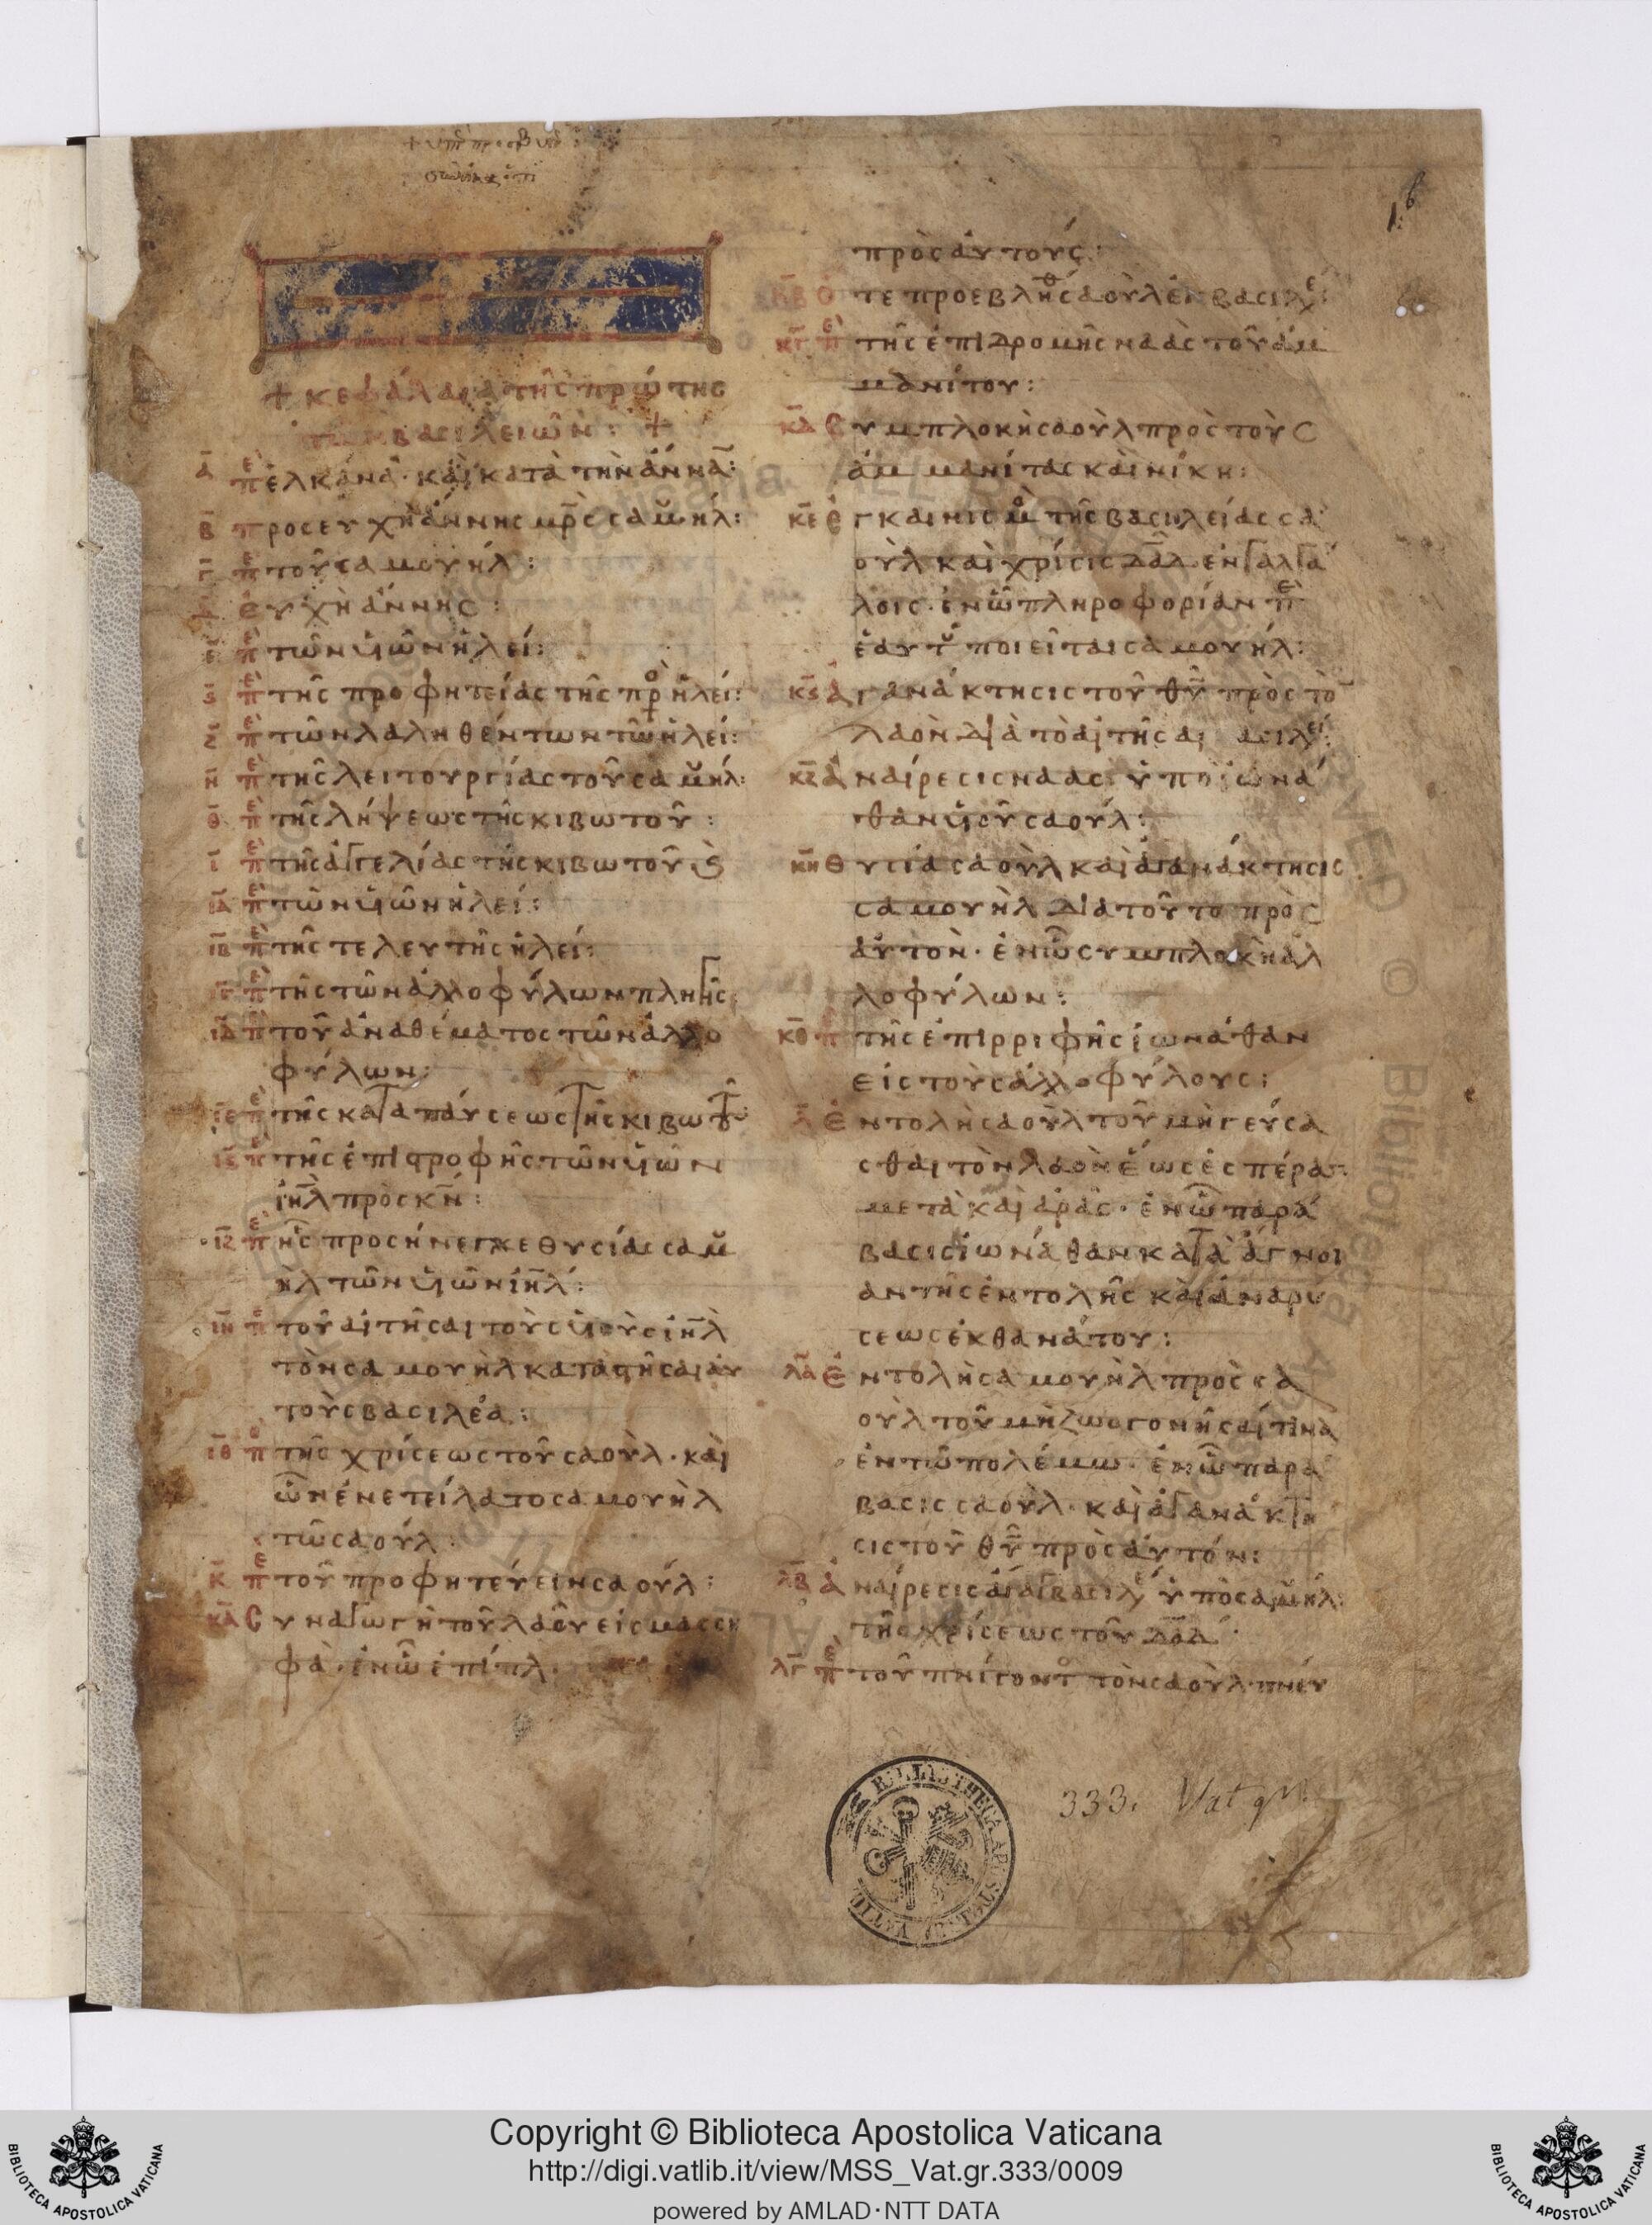 + κεφάλαια τῆς πρώτης
τῶν βασιλειῶν : +
α̅ πε ἑλκανὰ · καὶ κατὰ τὴν ἄνναν :
β̅ προσευχὴ ἄννης μρ̅ς σαμουήλ :
γ̅ πε τοῦ σαμουήλ :
δ̅ εὐχὴ ἄννης :
ε̅ πε τῶν ὑιῶν ἠλεί :
ς̅ πε τῆς προφητείας τῆς πρ ἠλεί :
ζ̅ πε τῶν λαληθέντων τῶ ἠλεί :
η̅ πε τῆς λειτουργίας τοῦ σαμουήλ :
θ̅ πε τῆς λήψεως τῆς κιβωτοῦ :
ι̅ πε τῆς ἀγγελίας τῆς κιβωτοῦ
ια̅ πε τῶν ὑιῶν ἠλεί :
ιβ̅ πε τῆς τελευτῆς ἠλεί :
ιγ̅ πε τῆς τῶν ἀλλοφύλων πληγῆς
ιδ̅ πε τοῦ ἀναθέματος τῶν ἀλλο
φύλων :
ιε̅ πε τῆς καταπαύσεως τῆς κιβωτοῦ :
ις̅ πε τῆς ἐπιστροφῆς τῶν ὑιῶν
ιη̅λ πρὸς κν̅ :
ιζ̅ πε ἧς προσήνεγκε θυσίας σαμου
ὴλ τῶν ὑιῶν ιη̅λ :
ιη̅ πε τοῦ αἰτῆσαι τοὺς ὑιοὺς ιη̅λ
τὸν σαμουὴλ καταστῆσαι αὐ
τοὺς βασιλέα :
ιθ̅ πε τῆς χρίσεως τοῦ σαοὺλ · καὶ
ὧν ἐνετείλατο σαμουὴλ
τῶ σαούλ :
κ̅ πε τοῦ προφητεύειν σαούλ :
κα̅ συναγωγὴ τοῦ λαοῦ εἰς μασση
φὰ · ἐν ὧ ἐπίπλ
πρὸς αὐτούς :
κβ̅ ὅτε προεβλήθη σαοὺλ ἐν βασιλε :
κγ̅ πε τῆς ἐπιδρομῆς ναὰς τοῦ ἀμ
μανίτου :
κδ̅ συμπλοκὴ σαοὺλ πρὸς τοὺς
ἀμμανίτας καὶ νίκη :
κε̅ ἐγκαινισμὸς τῆς βασιλείας σα
οὺλ καὶ χρίσις δα̅δ ἐν γαλγά
λοις · ἐν ὧ πληροφορίαν πε
ἑαυτοῦ ποιεῖται σαμουήλ :
κς̅ ἀγανάκτησις τοῦ θυ̅ πρὸς τὸ
λαὸν διὰ τὸ αἰτῆσαι βασιλεί :
κζ̅ ἀναίρεσις ναὰς ὑπὸ ἰωνά
θαν ὑιοῦ σαούλ :
κη̅ θυσία σαοὺλ καὶ ἀγανάκτησις
σαμουὴλ διὰ τοῦτο πρὸς
αὐτὸν · ἐν ὧ συμπλοκὴ ἀλ
λοφύλων :
κθ̅ πε τῆς ἐπιρριφῆς ἰωνάθαν
εἰς τοὺς ἀλλοφύλους :
λ̅ ἐντολὴ σαοὺλ τοῦ μὴ γεύσα
σθαι τὸν λαὸν ἕως ἑσπέρας
μετὰ καὶ ἀρᾶς · ἐν ὧ παρά
βασις ἰωνάθαν κατὰ ἄγνοι
αν τῆς ἐντολῆς καὶ ἀναρύ
σεως ἐκ θανάτου :
λα̅ ἐντολὴ σαμουὴλ πρὸς σα
οὺλ τοῦ μὴ ζωογονῆσαί τινα
ἐν τῶ πολέμω · ἐν ὧ παρά
βασις σαοὺλ · καὶ ἀγανάκτη
σις τοῦ θυ̅ πρὸς αὐτόν :
λβ̅ ἀναίρεσις ἀγὰγ βασιλε ὑπὸ σαμουήλ :
τῆς χρίσεως τοῦ δα̅δ ·
λγ̅ πε τοῦ πνίγοντος τὸν σαοὺλ πνευ
333. Vat gr.
Copyright © Biblioteca Apostolica Vaticana
http://digi.vatlib.it/view/MSS_Vat.gr.333/0009
powered by AMLAD·NTT DATA
BIBLIOTECA APOSTOLICA VATICANA
BIBLIOTECA APOSTOLICA VATICANA